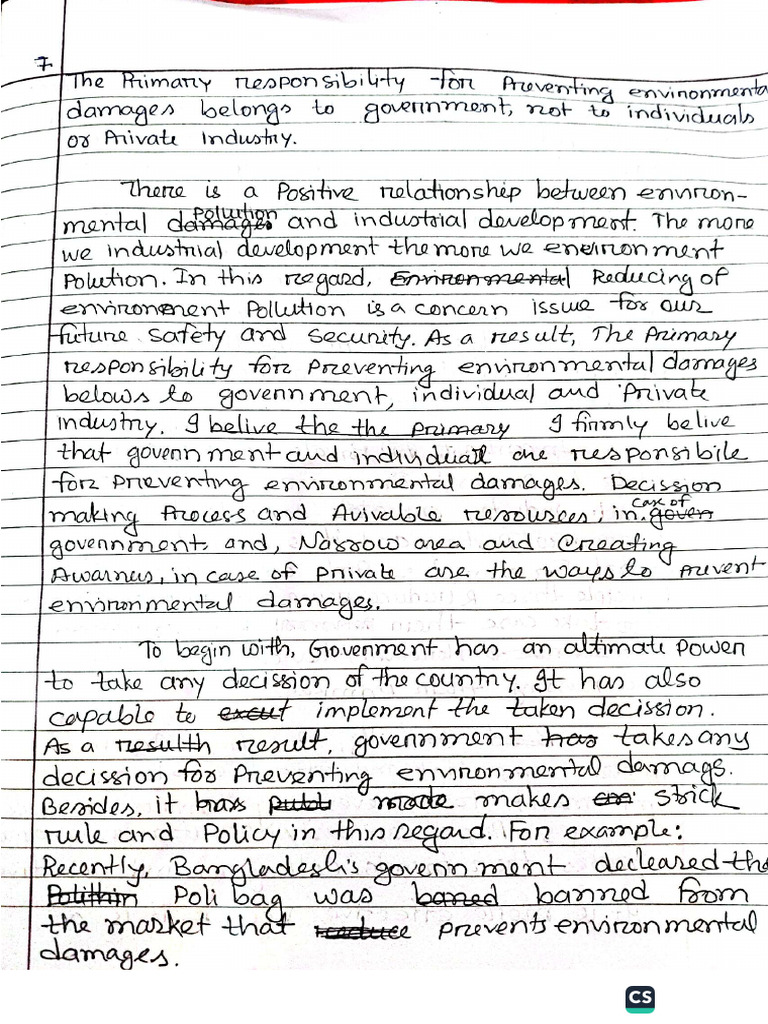 7
The Primary responsibility for Preventing environmenta
damages belongs to government, not to individuals
or Private Industry.
There is a Positive relationship between environ-
mental damages Pollution and industrial development. The more
we industrial development the more we environment
Polution. In this regard, Environmental Reducing of
environment Pollution is a concern issue for our
future safety and security. As a result, The Primary
responsibility for Preventing environmental damages
belows to government, individual and Private
industry. I belive the the primary I firmly belive
that government and individual are responsibile
for preventing environmental damages. Decission
making Process and Avivable resources, in case of goven
government, and, Narrow area and Creating
Awarnes, in case of private are the ways to prevent
environmental damages.
To begin with, Government has an altimate power
to take any decission of the country. It has also
capable to excut implement the taken decission.
As a resulth result, government has takes any
decission for Preventing environmental damags.
Besides, it has publ made makes strick
rule and Policy in this regard. For example:
Recently, Bangladesh's government decleared the
Polithin Poli bag was baned banned from
the market that reduce prevents environmental
damages.
CS